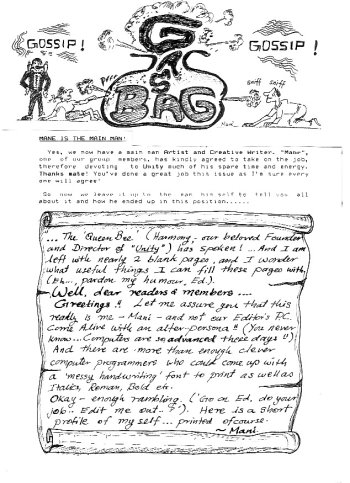 GOSSIP!
GAG
BAG
GOSSIP!
sniff sniff
MANE IS THE MAIN MAN'
Yes, we now have a main man Artist and Creative Writer. "Mane",
one of our group members, has kindly agreed to take on the job,
therefore devoting to Unity much of his spare time and energy.
Thanks mate! You've done a great job this issue as I'm sure every
one will agree!
So now we leave it up to the man himself to tell you all
about it and how he ended up in this position......
... The 'Queen Bee' (Harmony, our beloved Founder
and Director of "Unity") has spoken! ...And I am
left with nearly 2 blank pages, and I wonder
what useful things I can fill these pages with.
(Eh.., pardon my humour, Ed.).
Well, dear readers & members ....
Greetings!! Let me assure you that this
really is me - Mani - and not our Editor's P.C.
Come Alive with an alter-persona!! (You never
know... Computers are so advanced these days!!)
And there are more than enough clever
computer programmers who could come up with
a 'messy handwriting' font to print as well as
Italics, Roman, Bold etc.
Okay - enough rambling. ('Go on Ed, do your
job.. Edit me out..?'). Here is a short
profile of myself ... printed of course.
~ Mani.